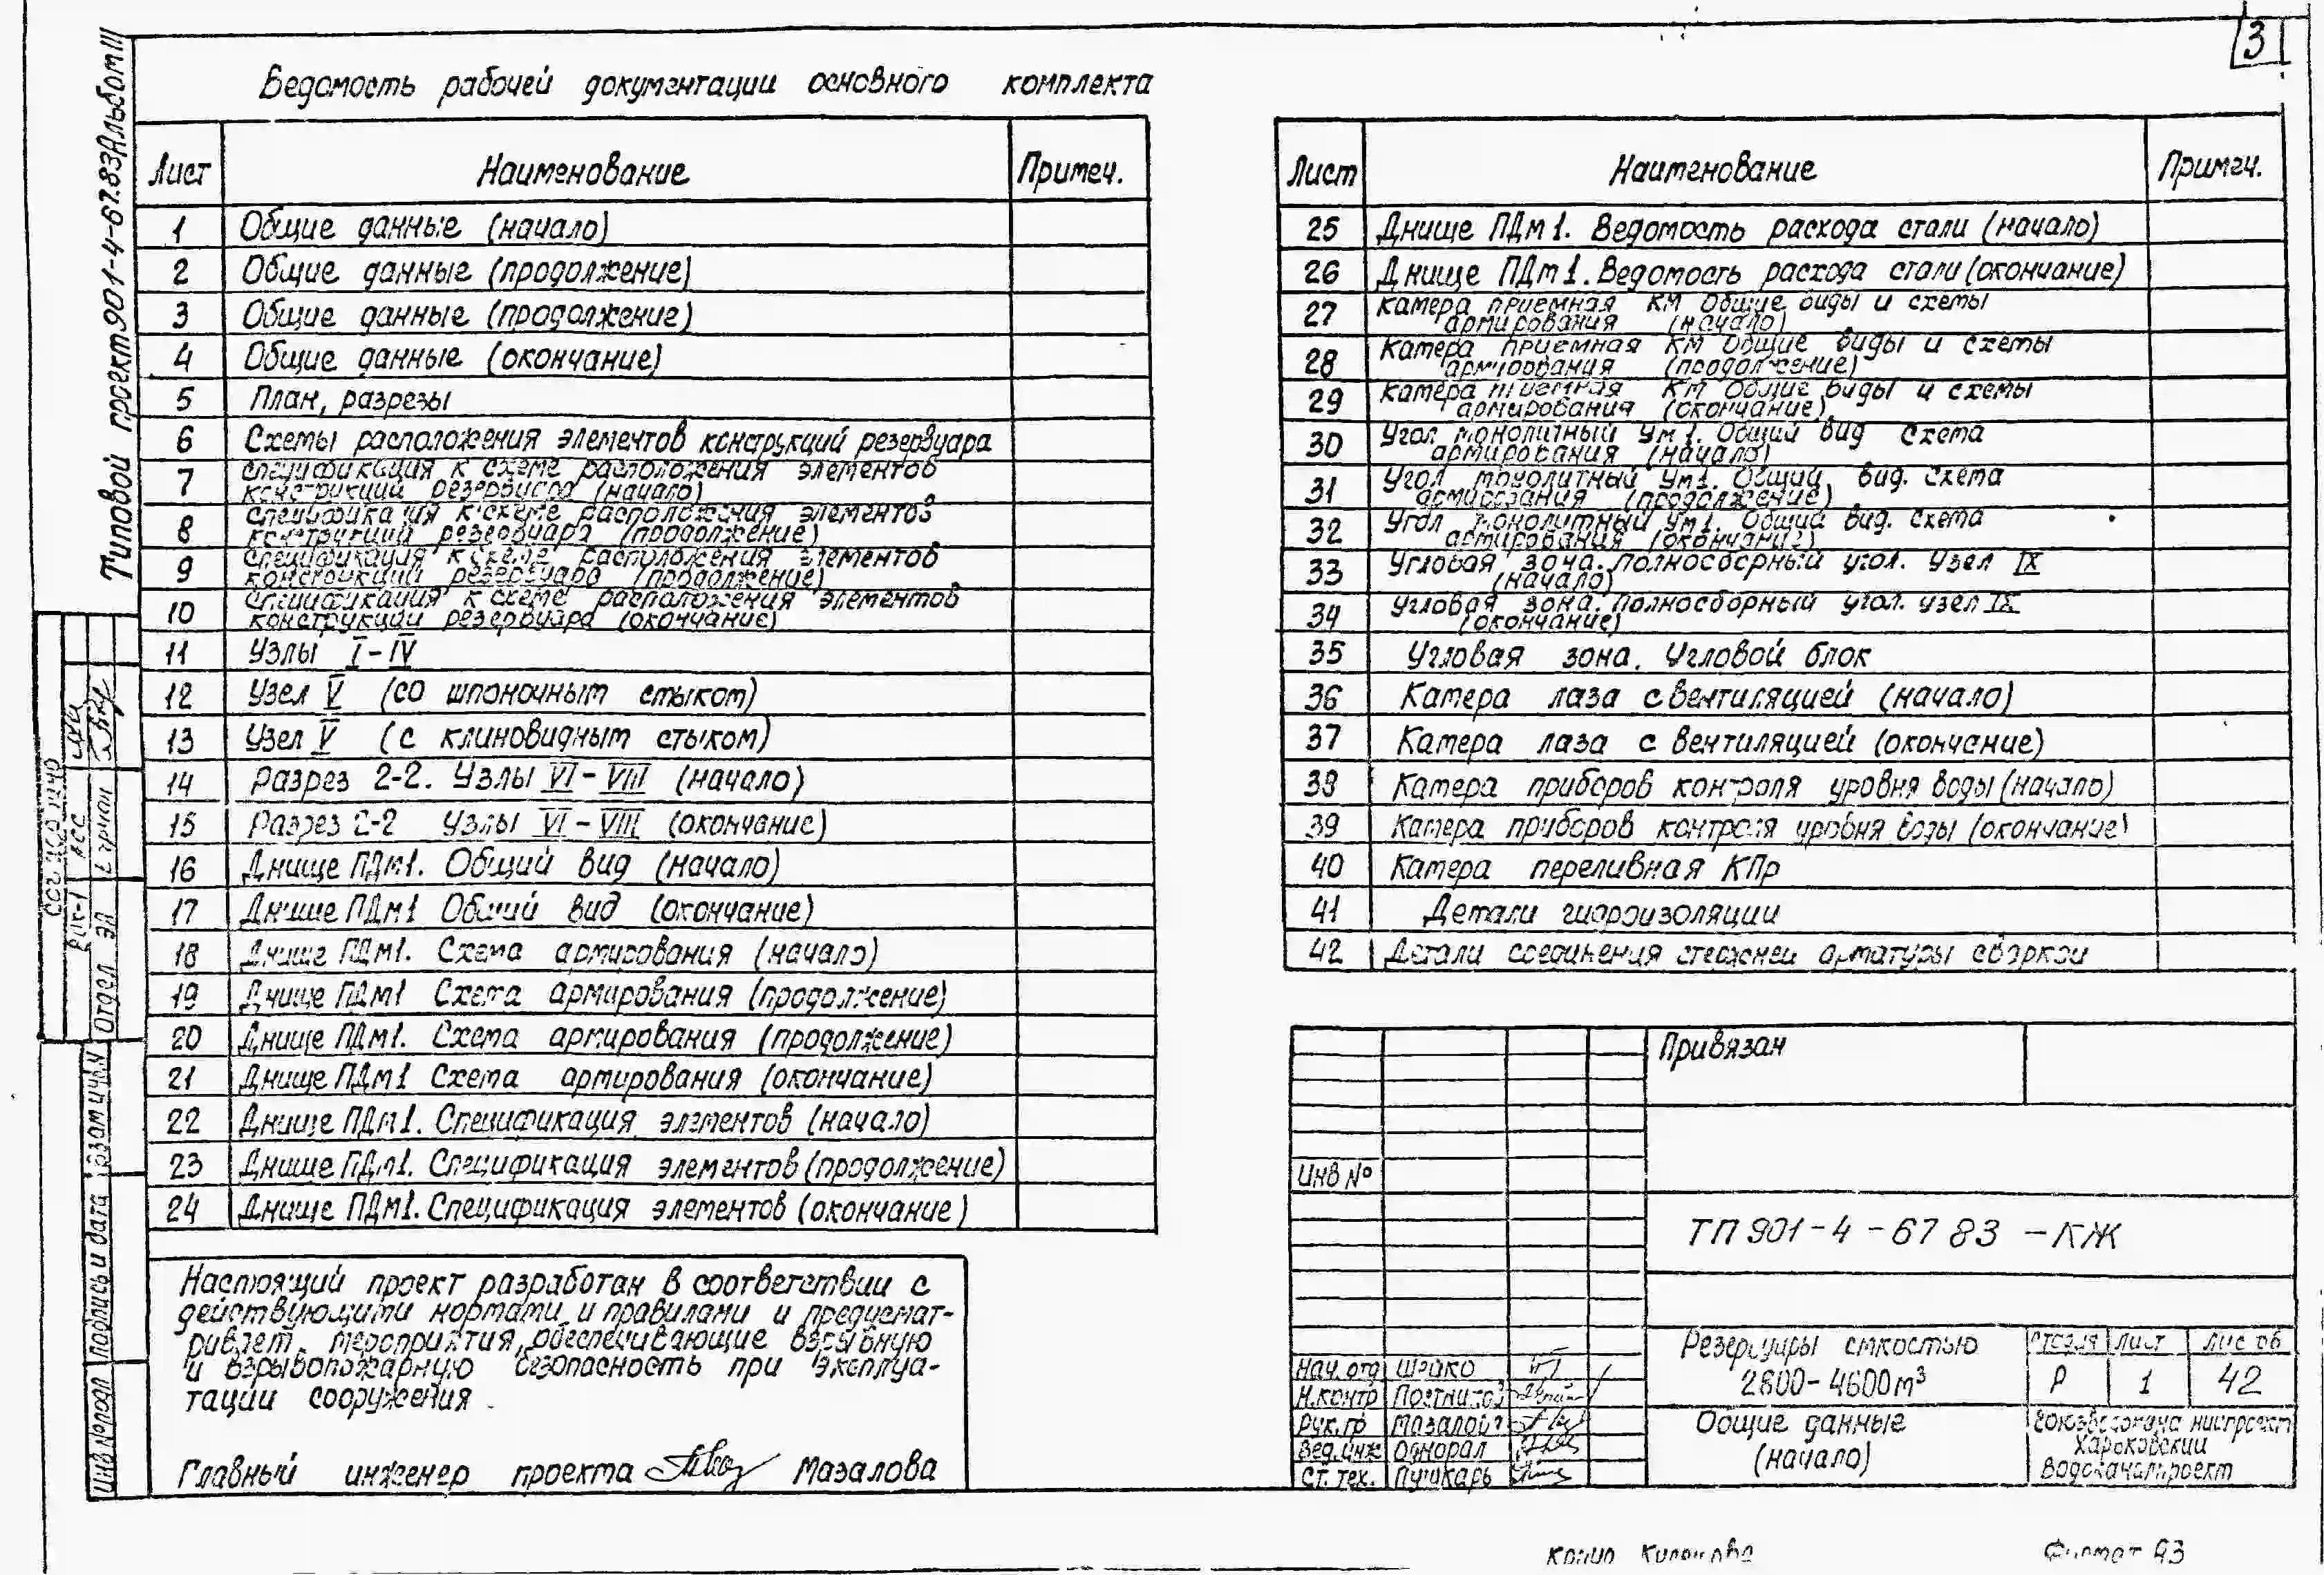 3
Типовой проект 901-4-67.83 Альбом III
Ведомость рабочей документации основного комплекта
Лист Наименование Примеч.
1 Общие данные (начало)
2 Общие данные (продолжение)
3 Общие данные (продолжение)
4 Общие данные (окончание)
5 План, разрезы
6 Схемы расположения элементов конструкций резервуара
7 Спецификация к схеме расположения элементов
конструкций резервуара (начало)
8 Спецификация к схеме расположения элементов
конструкций резервуара (продолжение)
9 Спецификация к схеме расположения элементов
конструкций резервуара (продолжение)
10 Спецификация к схеме расположения элементов
конструкций резервуара (окончание)
11 Узлы I-IV
12 Узел V (со шпоночным стыком)
13 Узел V (с клиновидным стыком)
14 Разрез 2-2. Узлы VI-VIII (начало)
15 Разрез 2-2 Узлы VI-VIII (окончание)
16 Днище ПДм1. Общий вид (начало)
17 Днище ПДм1 Общий вид (окончание)
18 Днище ПДм1. Схема армирования (начало)
19 Днище ПДм1 Схема армирования (продолжение)
20 Днище ПДм1. Схема армирования (продолжение)
21 Днище ПДм1 Схема армирования (окончание)
22 Днище ПДм1. Спецификация элементов (начало)
23 Днище ПДм1. Спецификация элементов (продолжение)
24 Днище ПДм1. Спецификация элементов (окончание)
Лист Наименование Примеч.
25 Днище ПДм1. Ведомость расхода стали (начало)
26 Днище ПДм1. Ведомость расхода стали (окончание)
27 Камера приемная КМ Общие виды и схемы
армирования (начало)
28 Камера приемная КМ Общие виды и схемы
армирования (продолжение)
29 Камера приемная КМ Общие виды и схемы
армирования (окончание)
30 Угол монолитный Ум1. Общий вид Схема
армирования (начало)
31 Угол монолитный Ум1. Общий вид. Схема
армирования (продолжение)
32 Угол монолитный Ум1. Общий вид. Схема
армирования (окончание)
33 Угловая зона. Полносборный угол. Узел IX
(начало)
34 Угловая зона. Полносборный угол. Узел IX
(окончание)
35 Угловая зона. Угловой блок
36 Камера лаза с вентиляцией (начало)
37 Камера лаза с вентиляцией (окончание)
38 Камера приборов контроля уровня воды (начало)
39 Камера приборов контроля уровня воды (окончание)
40 Камера переливная КПр
41 Детали гидроизоляции
42 Детали соединения стержней арматуры сваркой
Настоящий проект разработан в соответствии с
действующими нормами и правилами и предусмат-
ривает мероприятия, обеспечивающие взрывную
и взрывопожарную безопасность при эксплуа-
тации сооружения.
Главный инженер проекта Мазалова
Привязан
Инв №
ТП 901-4-67 83 -КЖ
Резервуары емкостью
2800-4600м³
Стадия Лист Листов
Р 1 42
Общие данные
(начало)
Союзводоканалниипроект
Харьковский
Водоканалпроект
Нач. отд Шейко
Н.контр Постнитов
Рук. гр Мазалова
Вед. инж Однорал
Ст. тех. Пушкарь
Отдел ЭП
Взам инв. N
Подпись и дата
Инв № подл
Формат А3